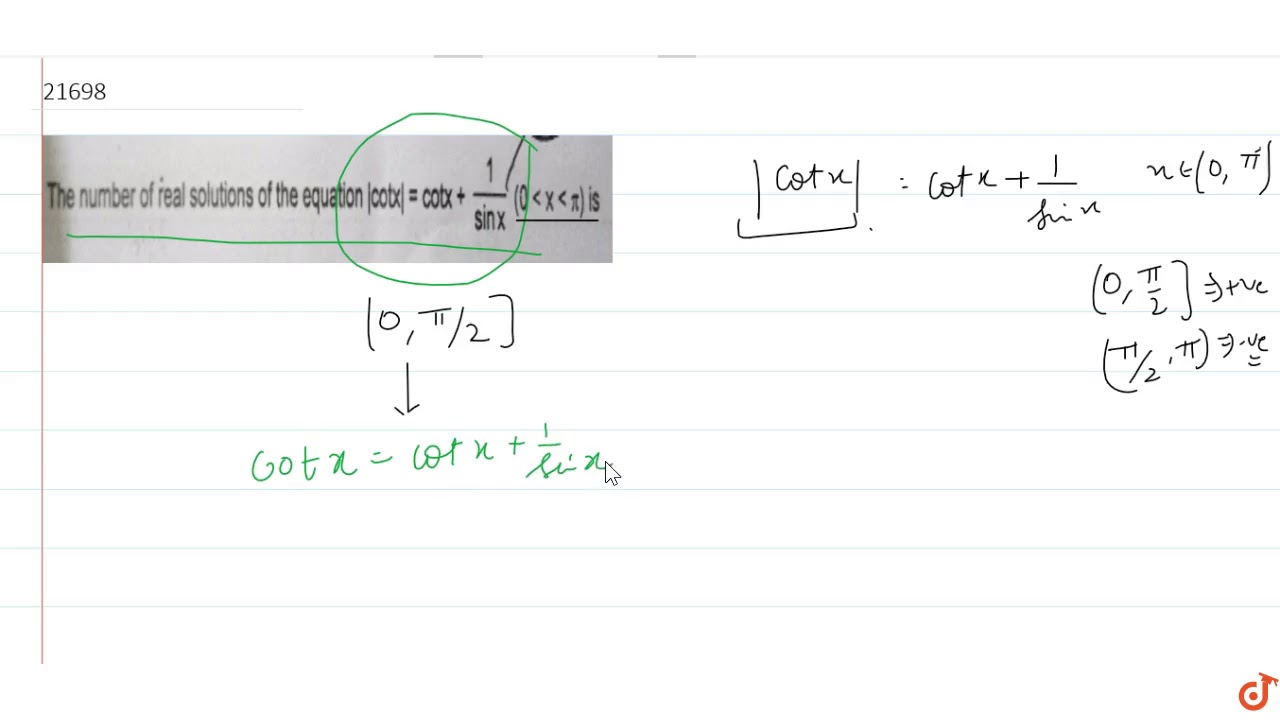 21698
The number of real solutions of the equation |cotx| = cotx + 1/sin x (0 < x < π) is
|cot x| = cot x + 1/sin x x ∈ (0, π)
(0, π/2] ⇒ +ve
(π/2, π) ⇒ -ve
(0, π/2]
↓
cot x = cot x + 1/sin x